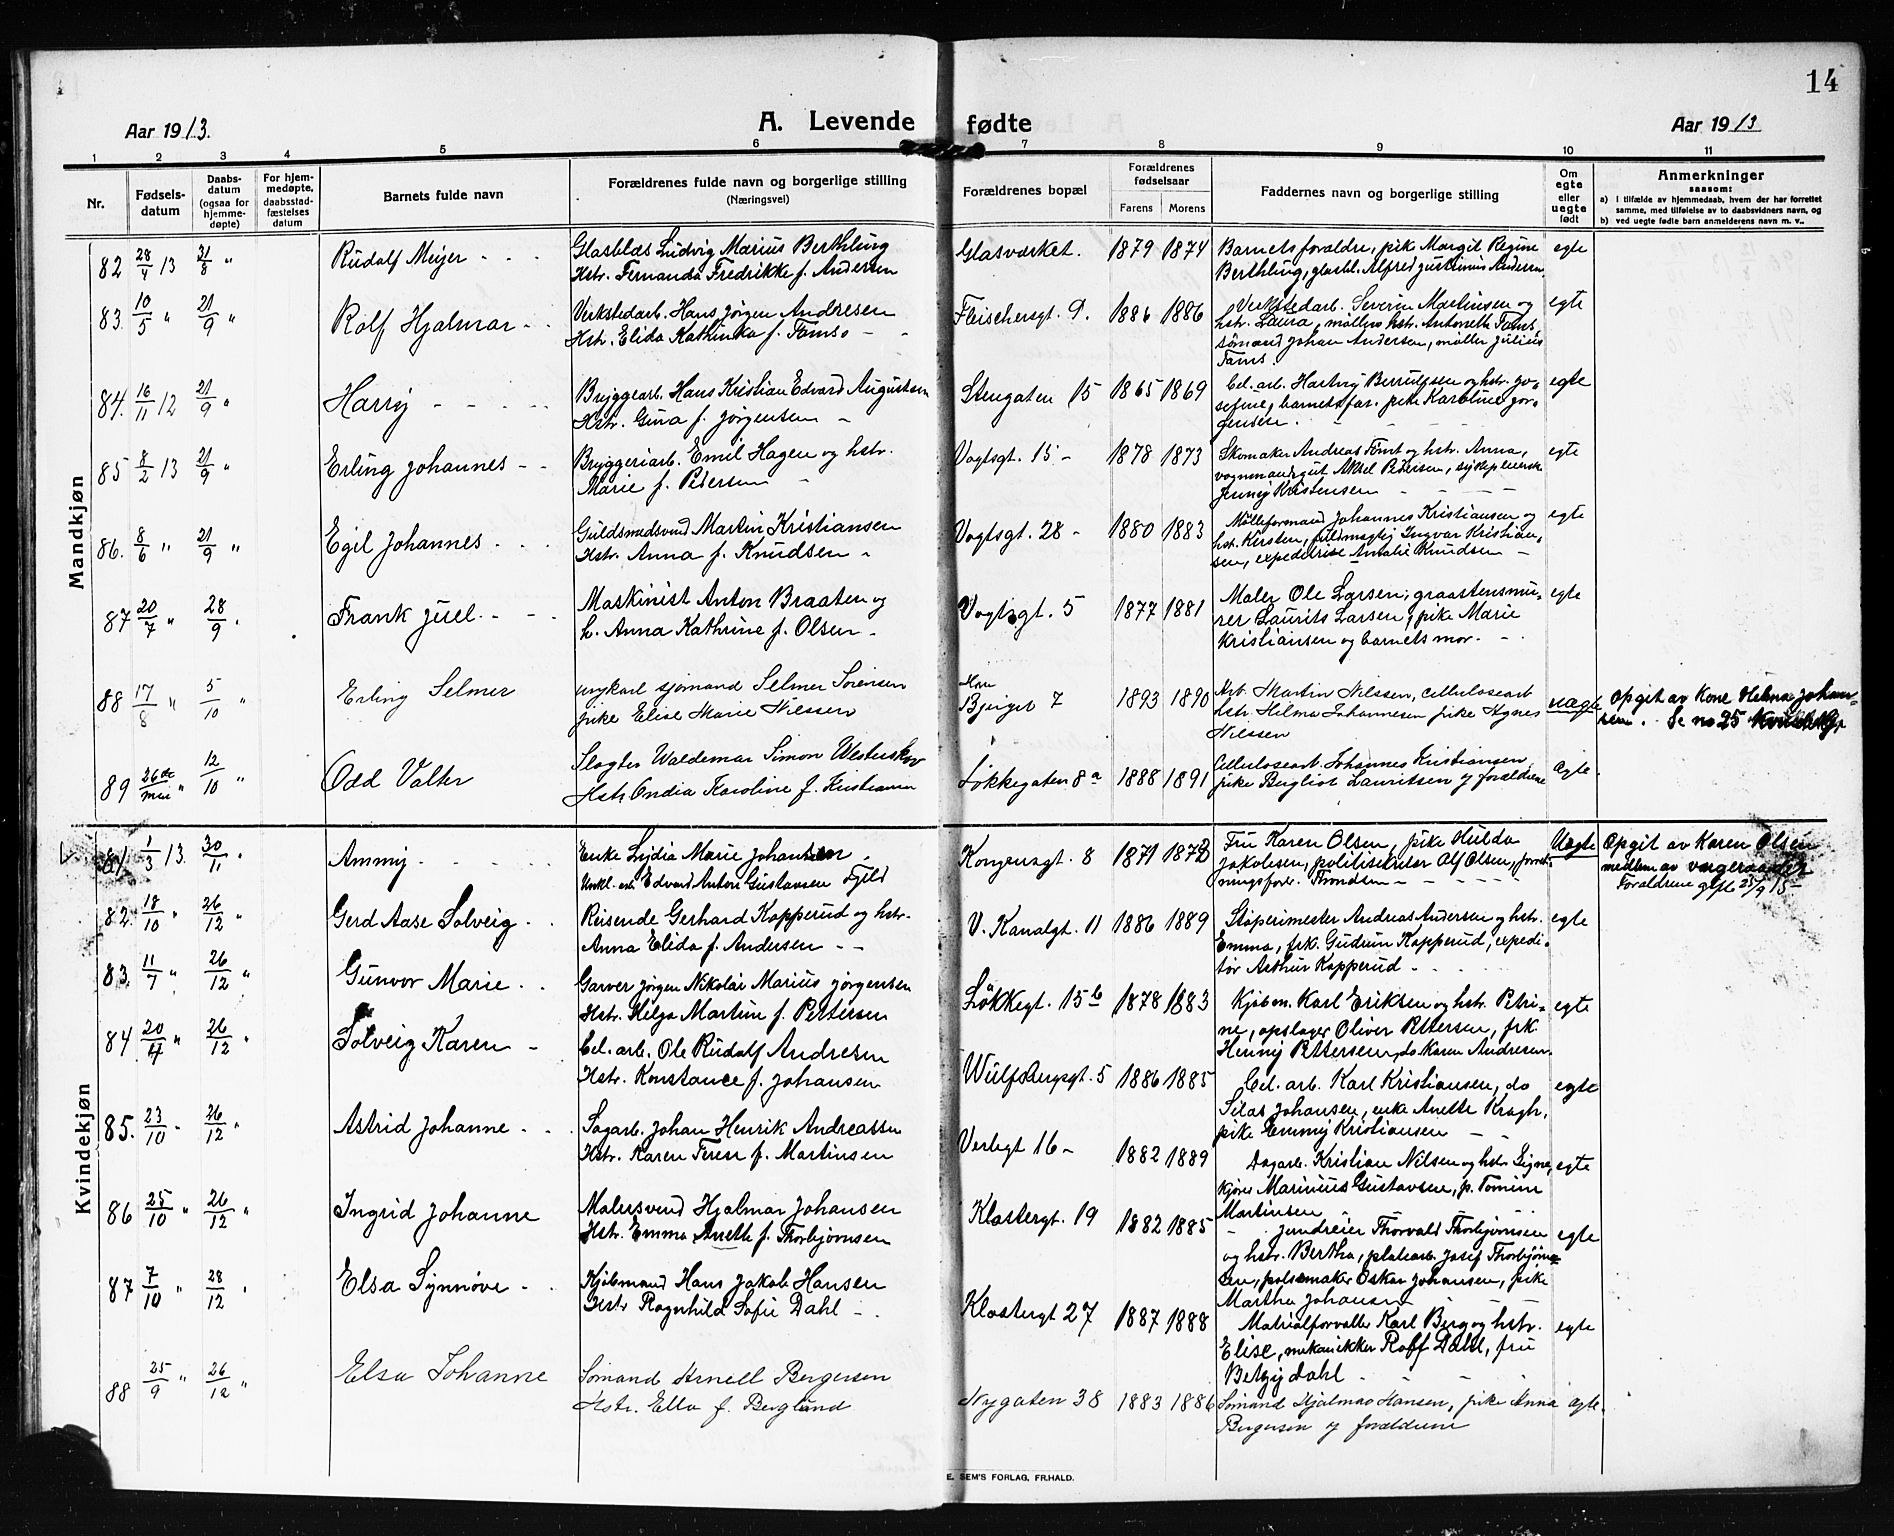 14
Aar 1913.
A. Levende fødte
Aar 1913
1 2 3 4 5 6 7 8 9 10 11
Nr.
Fødsels-
datum
Daabs-
datum
(ogsaa for
hjemme-
døpte)
For hjem-
medøpte,
daabsstad-
fæstelses
datum
Barnets fulde navn
Forældrenes fulde navn og borgerlige stilling
(Næringsvei)
Forældrenes bopæl
Forældrenes
fødselsaar
Farens Morens
Faddernes navn og borgerlige stilling
Om
egte
eller
uegte
født
Anmerkninger
saasom:
a) I tilfælde av hjemmedaab, hvem der har forrettet
samme, med tilføielse av to daabsvidners navn, og
b) ved uegte fødte barn anmelderens navn m. v.,
Mandkjøn
82 28/4 13 31/8 " Rudolf Meijer - - - Ludvig Marius Berthling Glasværket. 1879 1874 Barnets forældre, pike Margit Regine egte
Hstr. Fernanda Fredrikke f. Andersen Berthling, glasbl. Alfred Justinius Andersen
83. 10/5 " 21/9 " Rolf Hjalmar - - Verkstedarb. Hans Jørgen Andresen Fleischersgt. 9. 1886 1886 Verkstedarb. Severin Martinsen og egte
Hstr. Elida Kathinka f. Tams hstr. Laura, møllers hstr. Antonette Tams,
sømand Johan Andersen, møller Julius
Tams.
84. 16/11 12 21/9 " Harry - - - - Bryggearb. Hans Kristian Edvard Augustsen Stengaten 15 1865 1869 Cel. arb. Hartvig Berntsen og hstr. Jo- egte
Hstr. Gina f. Jørgensen - sefine, barnets far. pike Karoline Jør-
gensen.
85 8/2 13 21/9 " Erling Johannes - - Bryggeriarb. Emil Hagen og hstr. Vogtsgt. 15 - 1878 1873 Skomaker Andreas og hstr. Anna, egte
Marie f. Pedersen - vognmandsgut Aksel Pedersen, sykepleierske
Jenny Kristensen - - - -
86. 8/6 " 21/9 " Egil Johannes - - Guldsmedsvend Martin Kristiansen Vogtsgt. 28 - 1880 1883 Mølleformand Johannes Kristiansen og egte
Hstr. Anna f. Knudsen - hst. Kirsten, fuldmægtig Ingvar Kristian-
sen, expeditrise Amalie Knudsen -
87 20/7 " 28/9 " Frank Juel. - - Maskinist Anton Braaten og Vogtsgt. 5 1877 1881 Maler Ole Larsen, graastensmu- egte
h. Anna Kathrine f. Olsen - rer Laurits Larsen, pike Marie
Kristiansen og barnets mor. - -
88 17/8 " 5/10 " Erling Selmer ungkarl sjømand Selmer Sørensen Bjerget 7 1893 1890 Arb. Martin Nilssen, cellulosearb uægte Opgit av Kone Helma Johan-
pike Elise Marie Nilssen hstr Hilma Johannesen pike Agnes Se no 25
Nilssen
89 26de/mai " 12/10 " Odd Valter Slagter Waldemar Simon Løkkegaten 8a 1888 1891 Cellulosearb. Johannes Kristiansen, ægte.
Hstr Ondia Karoline f. Kristiansen pike Bergliot Lauritsen og forældrene
Kvindekjøn
81 1/3 13. 30/11 " Ammy - - - - - Enke Lydia Marie Johansen Kongensgt. 8 1871 1872 Fru Karen Olsen, pike Hulda Uegte Opgit av Karen Olsen
Edvard Anton Gustavsen Jakobsen, Alf Olsen, medlem av vergeraadet
Trondsen - - - - Forældrene gifte 25/9 15
82. 18/10 " 26/12 " Gerd Aase Solveig - - Reisende Gerhard Kopperud og hstr. V. Kanalgt. 11 1886 1889 Støperimester Andreas Andersen og hstr. egte
Anna Elida f. Andersen - - Emma, frk. Gudrun Kopperud, expedi-
tør Arthur Kopperud -
83. 11/7 " 26/12 " Gunvor Marie - - Garver Jørgen Nikolai Marius Jørgensen Løkkegt. 15b 1878 1883 Kjøbm. Karl Eriksen og hstr. Petri- egte
Hstr. Helga Martine f. Pettersen ne, opslager Oliver Pettersen, frk.
Henny Pettersen, do Karen Andresen.
84 20/4 " 26/12 " Solveig Karen - Cel. arb. Ole Rudolf Andresen Wulfsbergsgt. 5 1886 1885 Cel. arb. Karl Kristiansen, do egte
Hstr. Konstance f. Johansen Silas Johansen, enke Anette Kragh,
pike Emmy Kristiansen - -
85. 23/10 - 26/12 " Astrid Johanne - - Sagarb. Johan Henrik Andreassen Verlegt 16 - 1882 1889 Dagarb. Kristian Nilsen og hstr Signe, egte
Hstr. Karen Terese f. Martinsen Marinius Gustavsen, p. Tomine
Martinsen
86 25/10 " 26/12 " Ingrid Johanne Malersvend Hjalmar Johansen Klostergt. 19 1882 1885 Thorvald Thorbjørnsen egte
Hstr. Emma Anette f. Thorbjørnsen og hstr. Bertha, platearb. Josef Thorbjørn-
sen, pølsemaker Oskar Johansen, pike
Martha Johansen
87 7/10 " 28/12 " Elsa Synnøve - - Kjøbmand Hans Jakob Hansen Klostergt 27 1887 1888 Matrialforvalter Karl Berg og hstr. egte
Hstr Ragnhild Sofie Dahl - - Elise, mekanikker Rolf Dahl, fru
Betzy Dahl -
88 25/9 " 26/12 " Elsa Johanne Sømand Arnell Bergersen Nygaten 38 1883 1886 Sømand Hjalmar Hansen, pike Anna ægte.
Hstr. Ella f. Berglund Bergersen og forældrene
E. SEM'S FORLAG, FR.HALD.